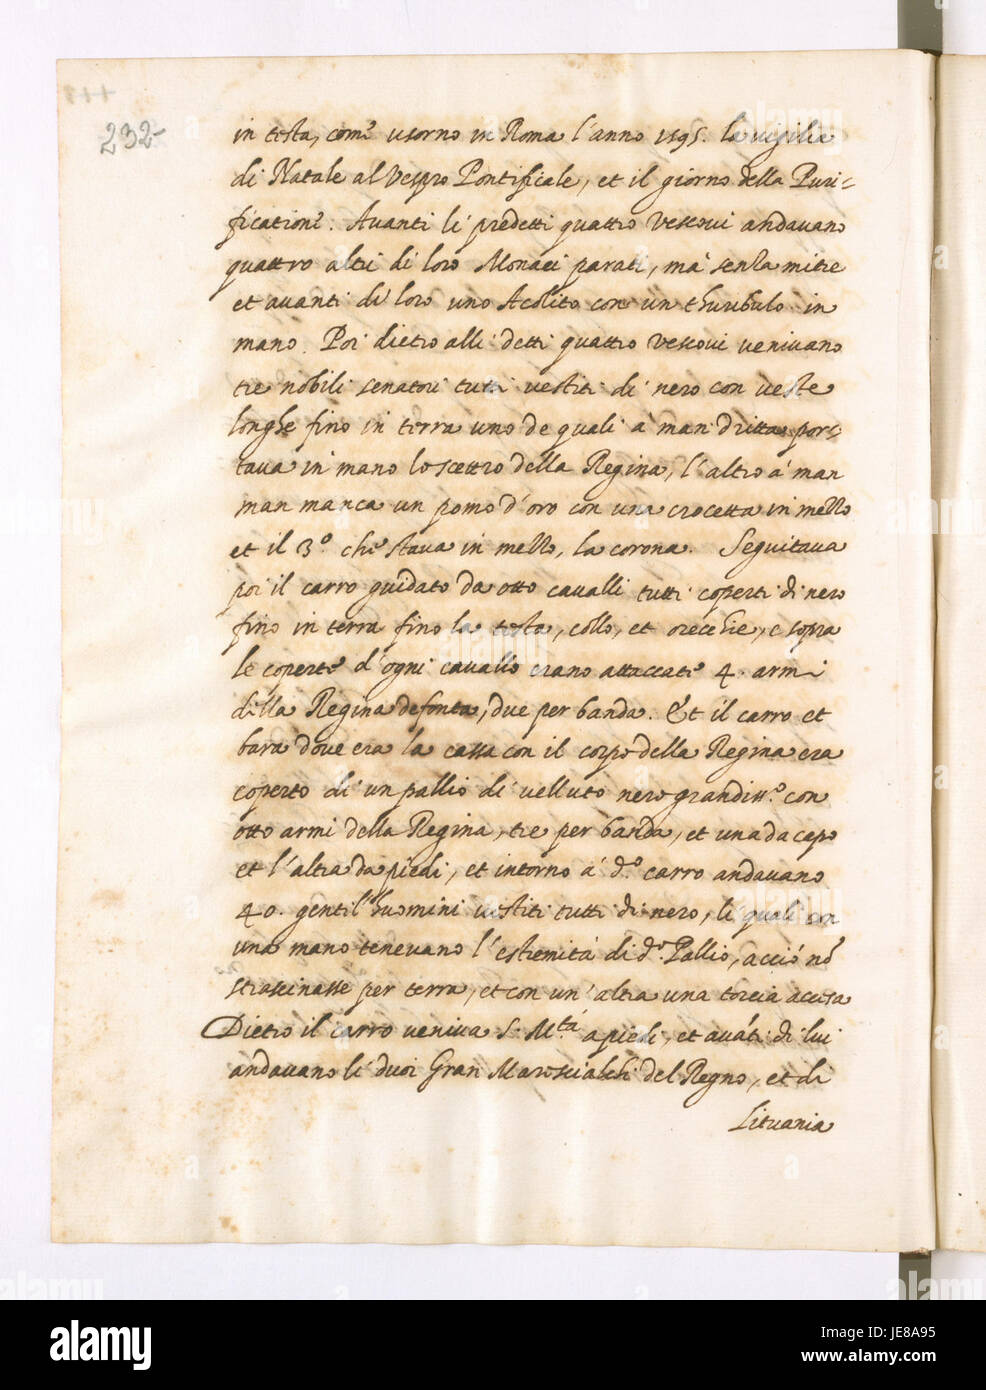 232
in testa, com.e usorno in Roma l'anno 1595. la vigilia
di Natale al Vespro Pontificale, et il giorno della Puri=
fication.e. Avanti li predetti quattro Vescovi andavano
quattro altri di loro Monaci parati, mà senza mitre
et avanti di loro uno Acolito con un thuribulo in
mano. Poi dietro alli detti quattro Vescovi venivano
tre nobili senatori tutti vestiti di nero con veste
longhe fino in terra uno de quali à man dritta por=
tava in mano lo scettro della Regina, l'altro à man
man manca un pomo d'oro con una crocetta in mezzo
et il 3.o che stava in mezzo, la corona. Seguitava
poi il carro guidato da otto cavalli tutti coperti di nero
fino in terra fino la testa, collo, et orecchie, e sopra
le coperte d'ogni cavallo erano attaccate 4. armi
della Regina defonta, due per banda. Et il carro et
bara dove era la cassa con il corpo della Regina era
coperto di un pallio di velluto nero grandiss.o con
otto armi della Regina, tre per banda, et una da capo
et l'altra da piedi, et intorno à d.o carro andavano
40. gentil'huomini vestiti tutti di nero, li quali con
una mano tenevano l'estremità di d.o Pallio, acciò nõ
strascinasse per terra, et con un'altra una torcia accesa
Dietro il carro veniva S. M.tà a piedi, et avãti di lui
andavano li duoi Gran Marescialchi del Regno, et di
Lituania
alamy
JE8A95
www.alamy.com